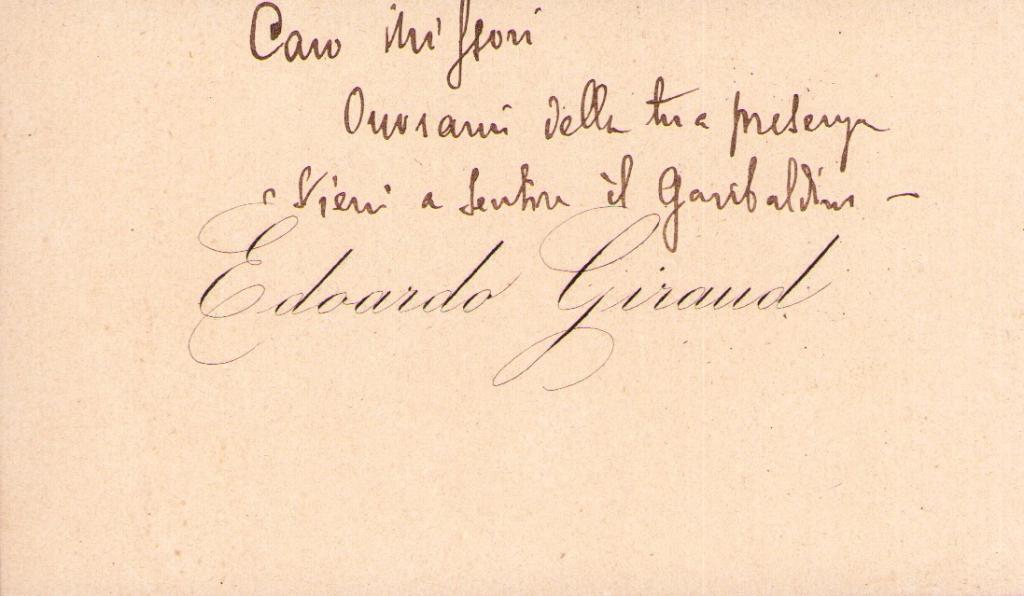 Caro Missori
Onorami della tua presenza
Vieni a sentire il Garibaldino —
Edoardo Giraud